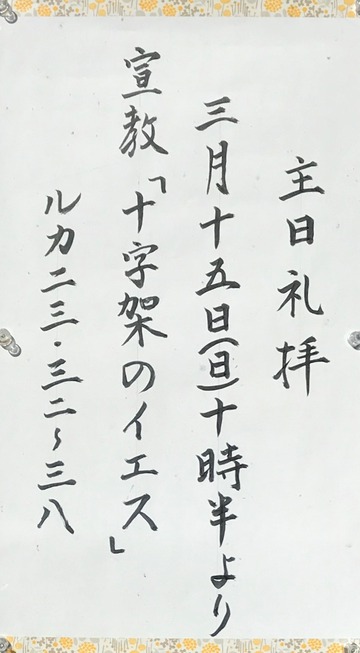 主日礼拝
三月十五日(日)十時半より
宣教「十字架のイエス」
ルカ二三・三二～三八